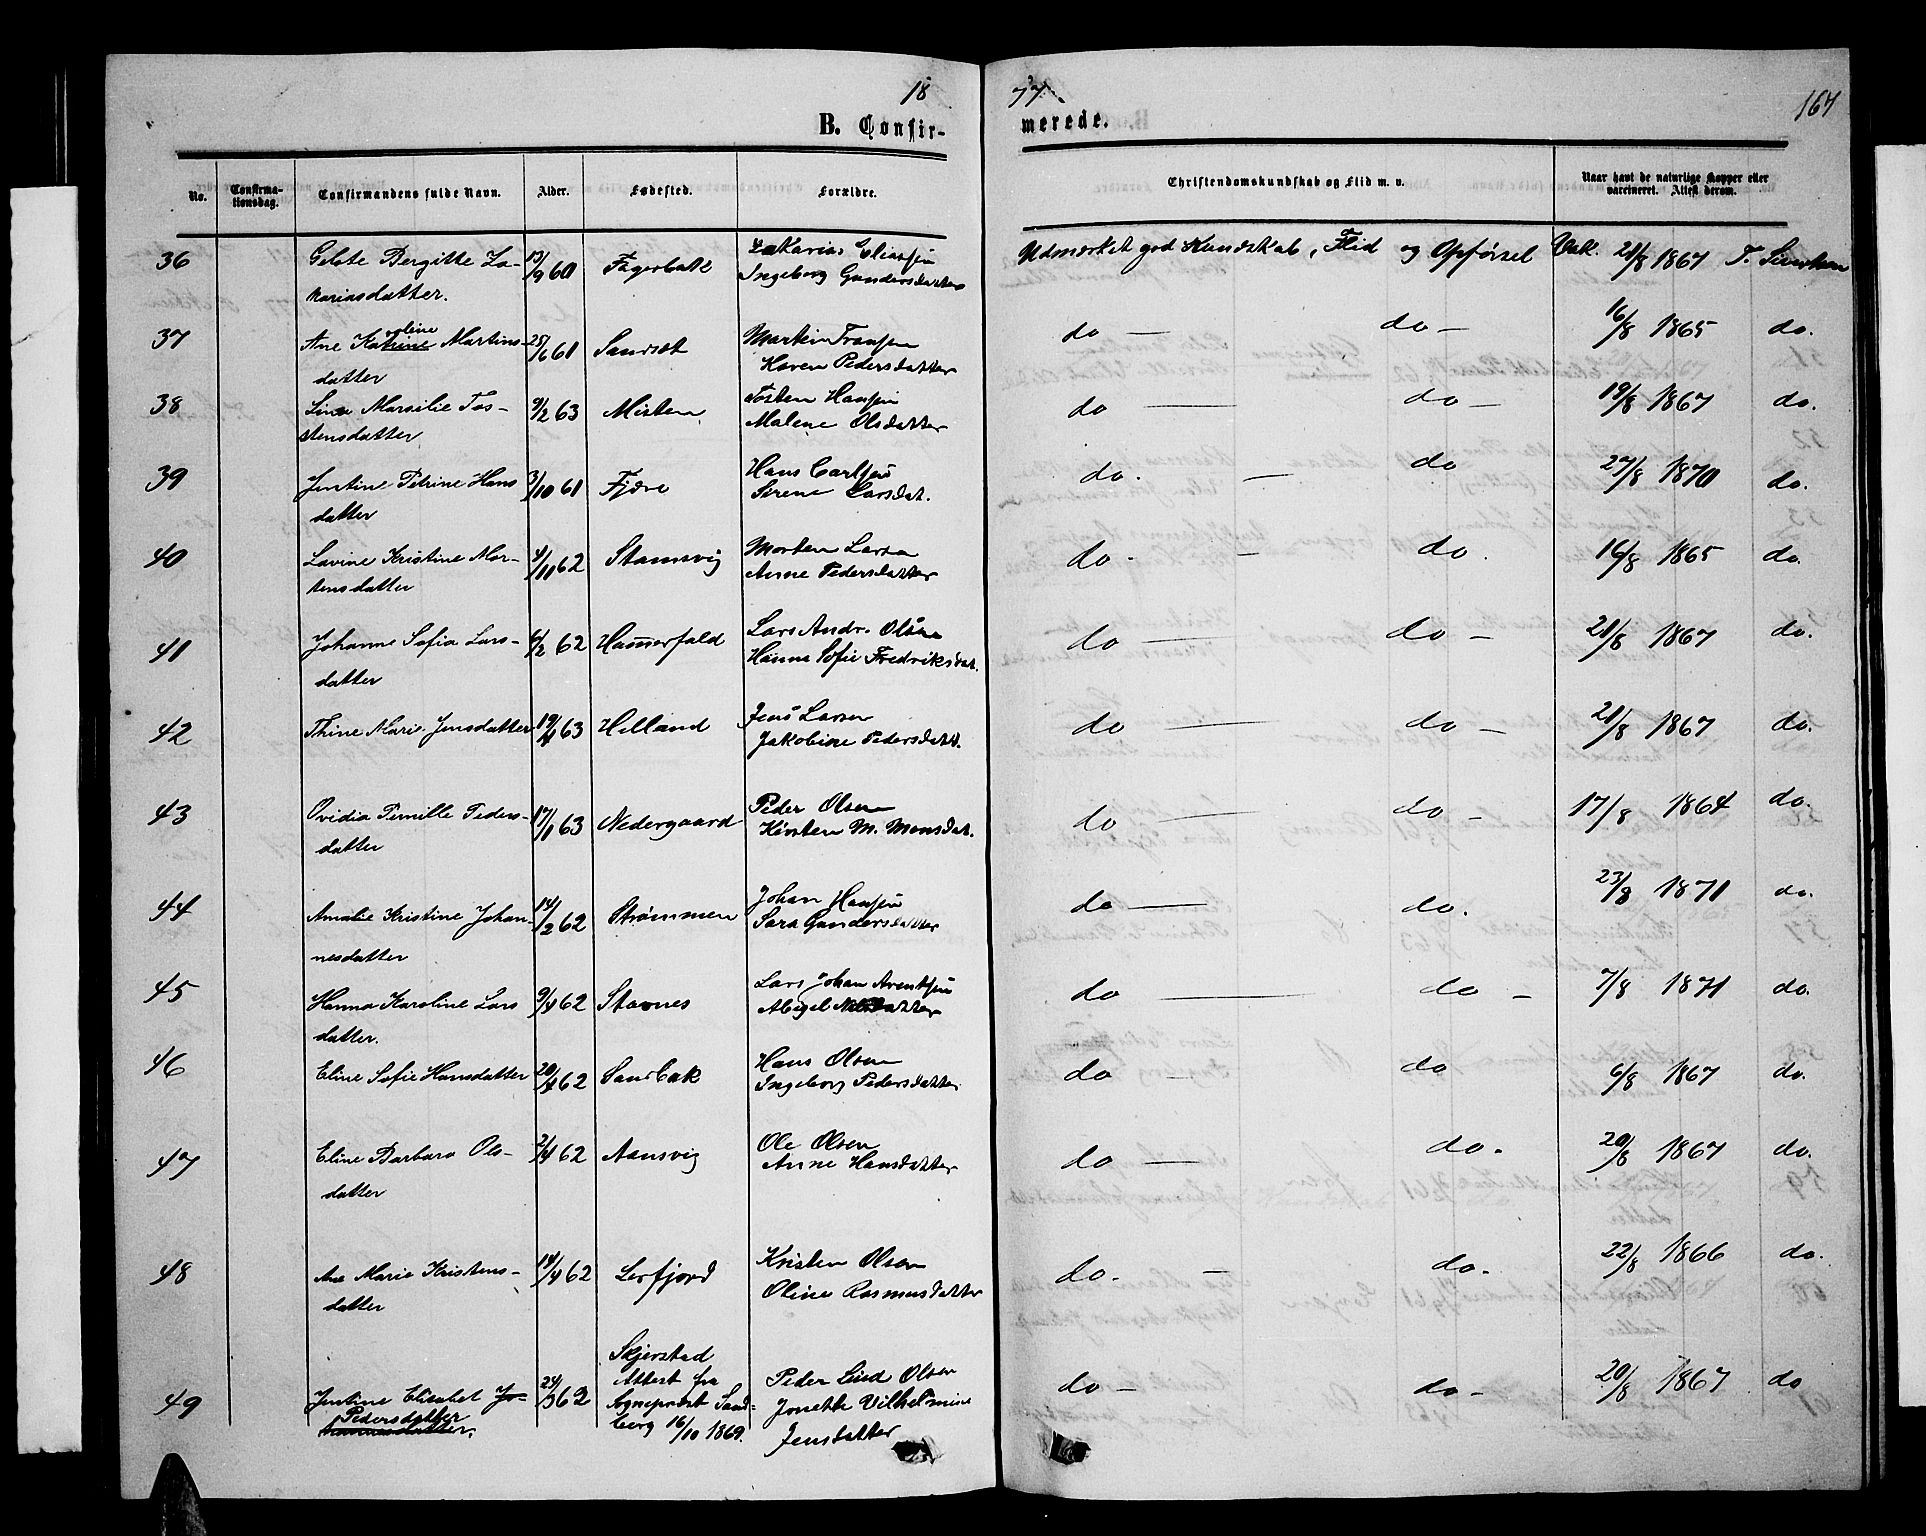 18 77. 167
B. Confir- merede.
No. Confirma-tionsdag. Confirmandens fulde Navn. Alder. Fødested. Forældre. Christendomskundskab og Flid m. v. Naar havt de naturlige Kopper eller vaccineret. Attest derom.
36 Gelote Bergitte Za- 13/9 60 Fagerbakk Zakarias Eliassen Udmærket god Kundskab, Flid og Opførsel Vak. 21/8 1867 T. Sivertsen
kariasdatter. Ingeborg Gundersdatter
37 Ane Katrine oline Martins- 25/6 61 Sandset Martin Fransen do — do — 16/8 1865 do.
datter Karen Pedersdatter
38 Lina Marsilie Tos- 9/2 63 Misten Tosten Hansen do — do — 19/8 1867 do.
stensdatter Malene Olsdatter
39 Justine Petrine Hans 3/10 61 Fjære Hans Carlsen do. — do 27/8 1870 do.
datter Serene Larsdat.
40 Lavine Kristine Mor- 4/11 62 Stamsvig Morten Larsen do - — do. 16/8 1865 do.
tensdatter Anne Pedersdatter
41 Johanne Sofia Lars- 4/2 62 Hammerfald Lars Andr. Olsen do — do — 21/8 1867 do.
datter Hanna Sofie Fredriksdat.
42 Thine Marie Jensdatter 19/4 63 Helland Jens Larsen do — do — 21/8 1867 do.
Jakobine Pedersdatt.
43 Ovidia Pernille Peders- 17/1 63 Nedergaard Peder Olsen do — do — 17/8 1864 do.
datter Kirsten M. Monsdat.
44 Amalie Kristine Johan- 14/2 62 Strømmen Johan Hansen do — do. 23/8 1871 do.
nesdatter Sara Gundersdatter
45 Hanna Karoline Lars 9/4 62 Stavnes Lars Johan Arentsen do — do — 7/8 1871 do.
datter. Abigel Nilsdatter
46 Eline Sofie Hansdatter 20/4 62 Sandbak Hans Olsen do — do 6/8 1867 do.
Ingeborg Pedersdatter
47 Eline Barbara Ols- 2/4 62 Aansvig Ole Olsen do — do. 20/8 1867 do.
datter Anne Hansdatter
48 Ane Marie Kristens- 14/4 62 Leifjord Kristen Olsen do. — do. 22/8 1866 do.
datter Oline Rasmusdatter
49 Justine Elisabet Jo- 24/3 62 Skjerstad Peder Lind Olsen do — do — 20/8 1867 do
Pedersdatter Attest fra Jonette Vilhelmine
hannesdatter. Sognepræst Sand- Jensdatter
berg 16/10 1869.